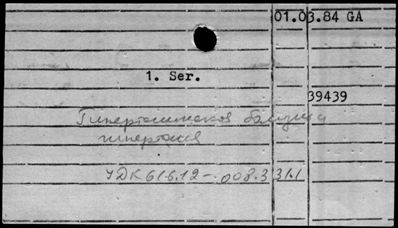 01.03.84 GA
1. Ser.
39439
гипертония
УДК 616.12-.008.331.1